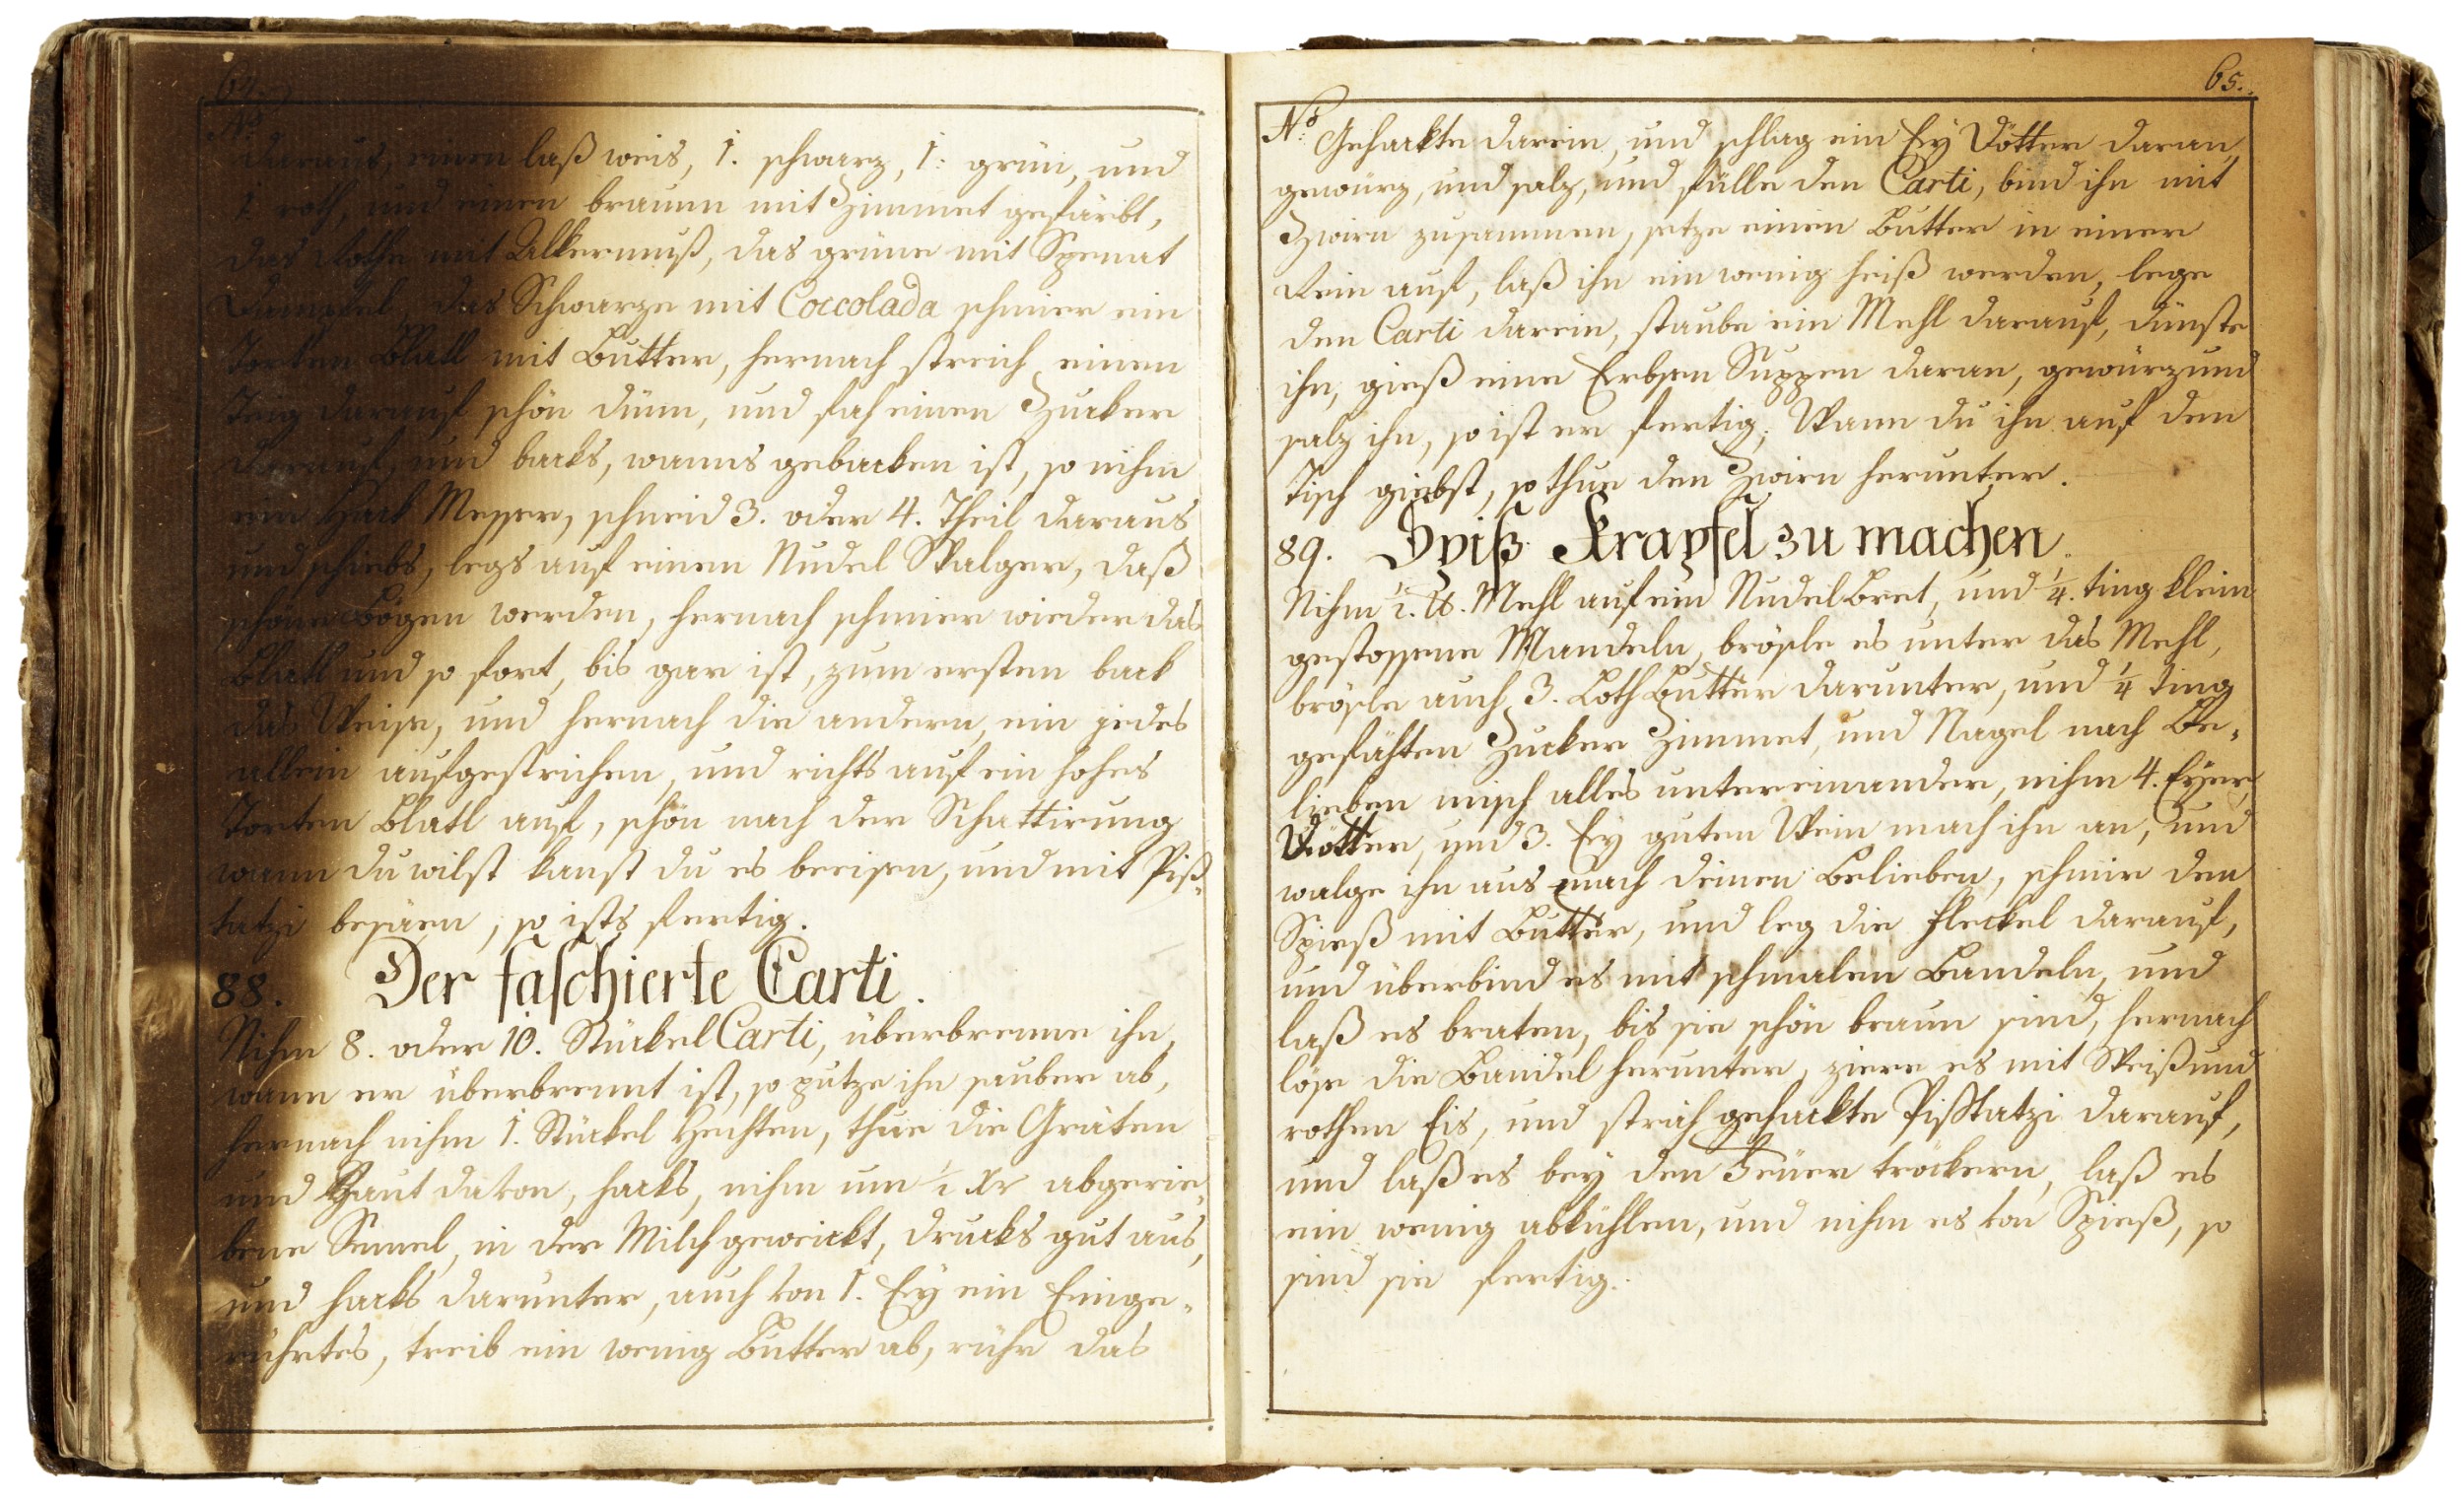 64.
No
daraus, einen laß weis, 1. schwarz, 1: grün, und
1. roth, und einen braunn mit Zimmet gefärbt,
das Rothe mit Alkermuß, das grüne mit Spenat
das Schwarze mit Coccolada schmier ein
Torten Blatl mit Butter, hernach streich einen
Teig darauf schön dünn, und fäh einen Zucker
darauf, und backs, wanns gebacken ist, so nihm
ein Hack Messer, schneid 3. oder 4. Theil daraus
und schiebs, legs auf einem Nudel Walger, daß
schöne Bögen werden, hernach schmier wieder das
Blatl und so fort, bis gar ist, zum ersten back
das Weise, und hernach die andern, ein jedes
allein aufgestrichen, und richts auf ein hohes
Torten Blatl auf, schön nach der Schattirung
wann du wilst kanst du es beeisen, und mit Piß„
tatzi besäen, so ists fertig.
88. Der faschierte Carti.
Nihm 8. oder 10. Stückel Carti, überbrenne ihn,
wann er überbrennt ist, so putze ihn sauber ab,
hernach nihm 1. Stückel Hechten, thue die Gräten
und Haut davon, hacks, nihm um ½ Xr abgerie„
bene Semel, in der Milch geweickt, drucks gut aus,
und hacks darunter, auch von 1. Ey ein Einge„
rührtes, treib ein wenig Butter ab, rühr das
65.
No Gehackte darein, und schlag ein Ey Dötter daran,
gewürz, und salz, und fülle den Carti, bind ihn mit
Zwirn zusammen, setze einen Butter in einer
Rein auf, laß ihn ein wenig heiß werden, lege
den Carti darein, staube ein Mehl darauf, dünste
ihn, gieß eine Erbsen Suppen daran, gewürz und
salz ihn, so ist er fertig; Wann du ihn auf den
Tisch giebst, so thue den Zwirn herunter.
89. Spiß Krapfel zu machen.
Nihm ½. ℔. Mehl auf ein Nudel Bret, und ¼. ting klein
gestossene Mandeln, brösle es unter das Mehl,
brösle auch 3. Loth Butter darunter, und ¼ ting
gefähten Zucker Zimmet, und Nagel nach Be„
lieben misch alles untereinander, nihm 4. Eyer
Dötter, und 3. Ey guten Wein mach ihn an, und
walge ihn aus nach deinen Belieben, schmir den
Spieß mit Butter, und leg die Fleckel darauf,
und überbind es mit schmalen Bandeln, und
laß es braten, bis sie schön braun sind, hernach
löse die Bandel herunter, ziere es mit Weiß und
rothen Eis, und sträh gehackte Pißtatzi darauf,
und laß es bey den Feüer tröckern, laß es
ein wenig abkühlen, und nihm es von Spieß, so
sind sie fertig.